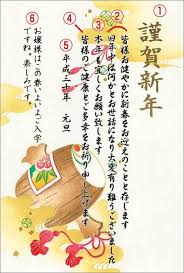 ①
謹賀新年
皆様お健やかに新春をお迎えのことと存じます
②
旧年中は何かとお世話になり大変有り難うございました
③
本年も宜しくお願い致します
④
皆様のご健康とご多幸をお祈り申し上げます
⑤
平成三十年 元旦
お嬢様はこの春いよいよご入学
ですね。楽しみです。